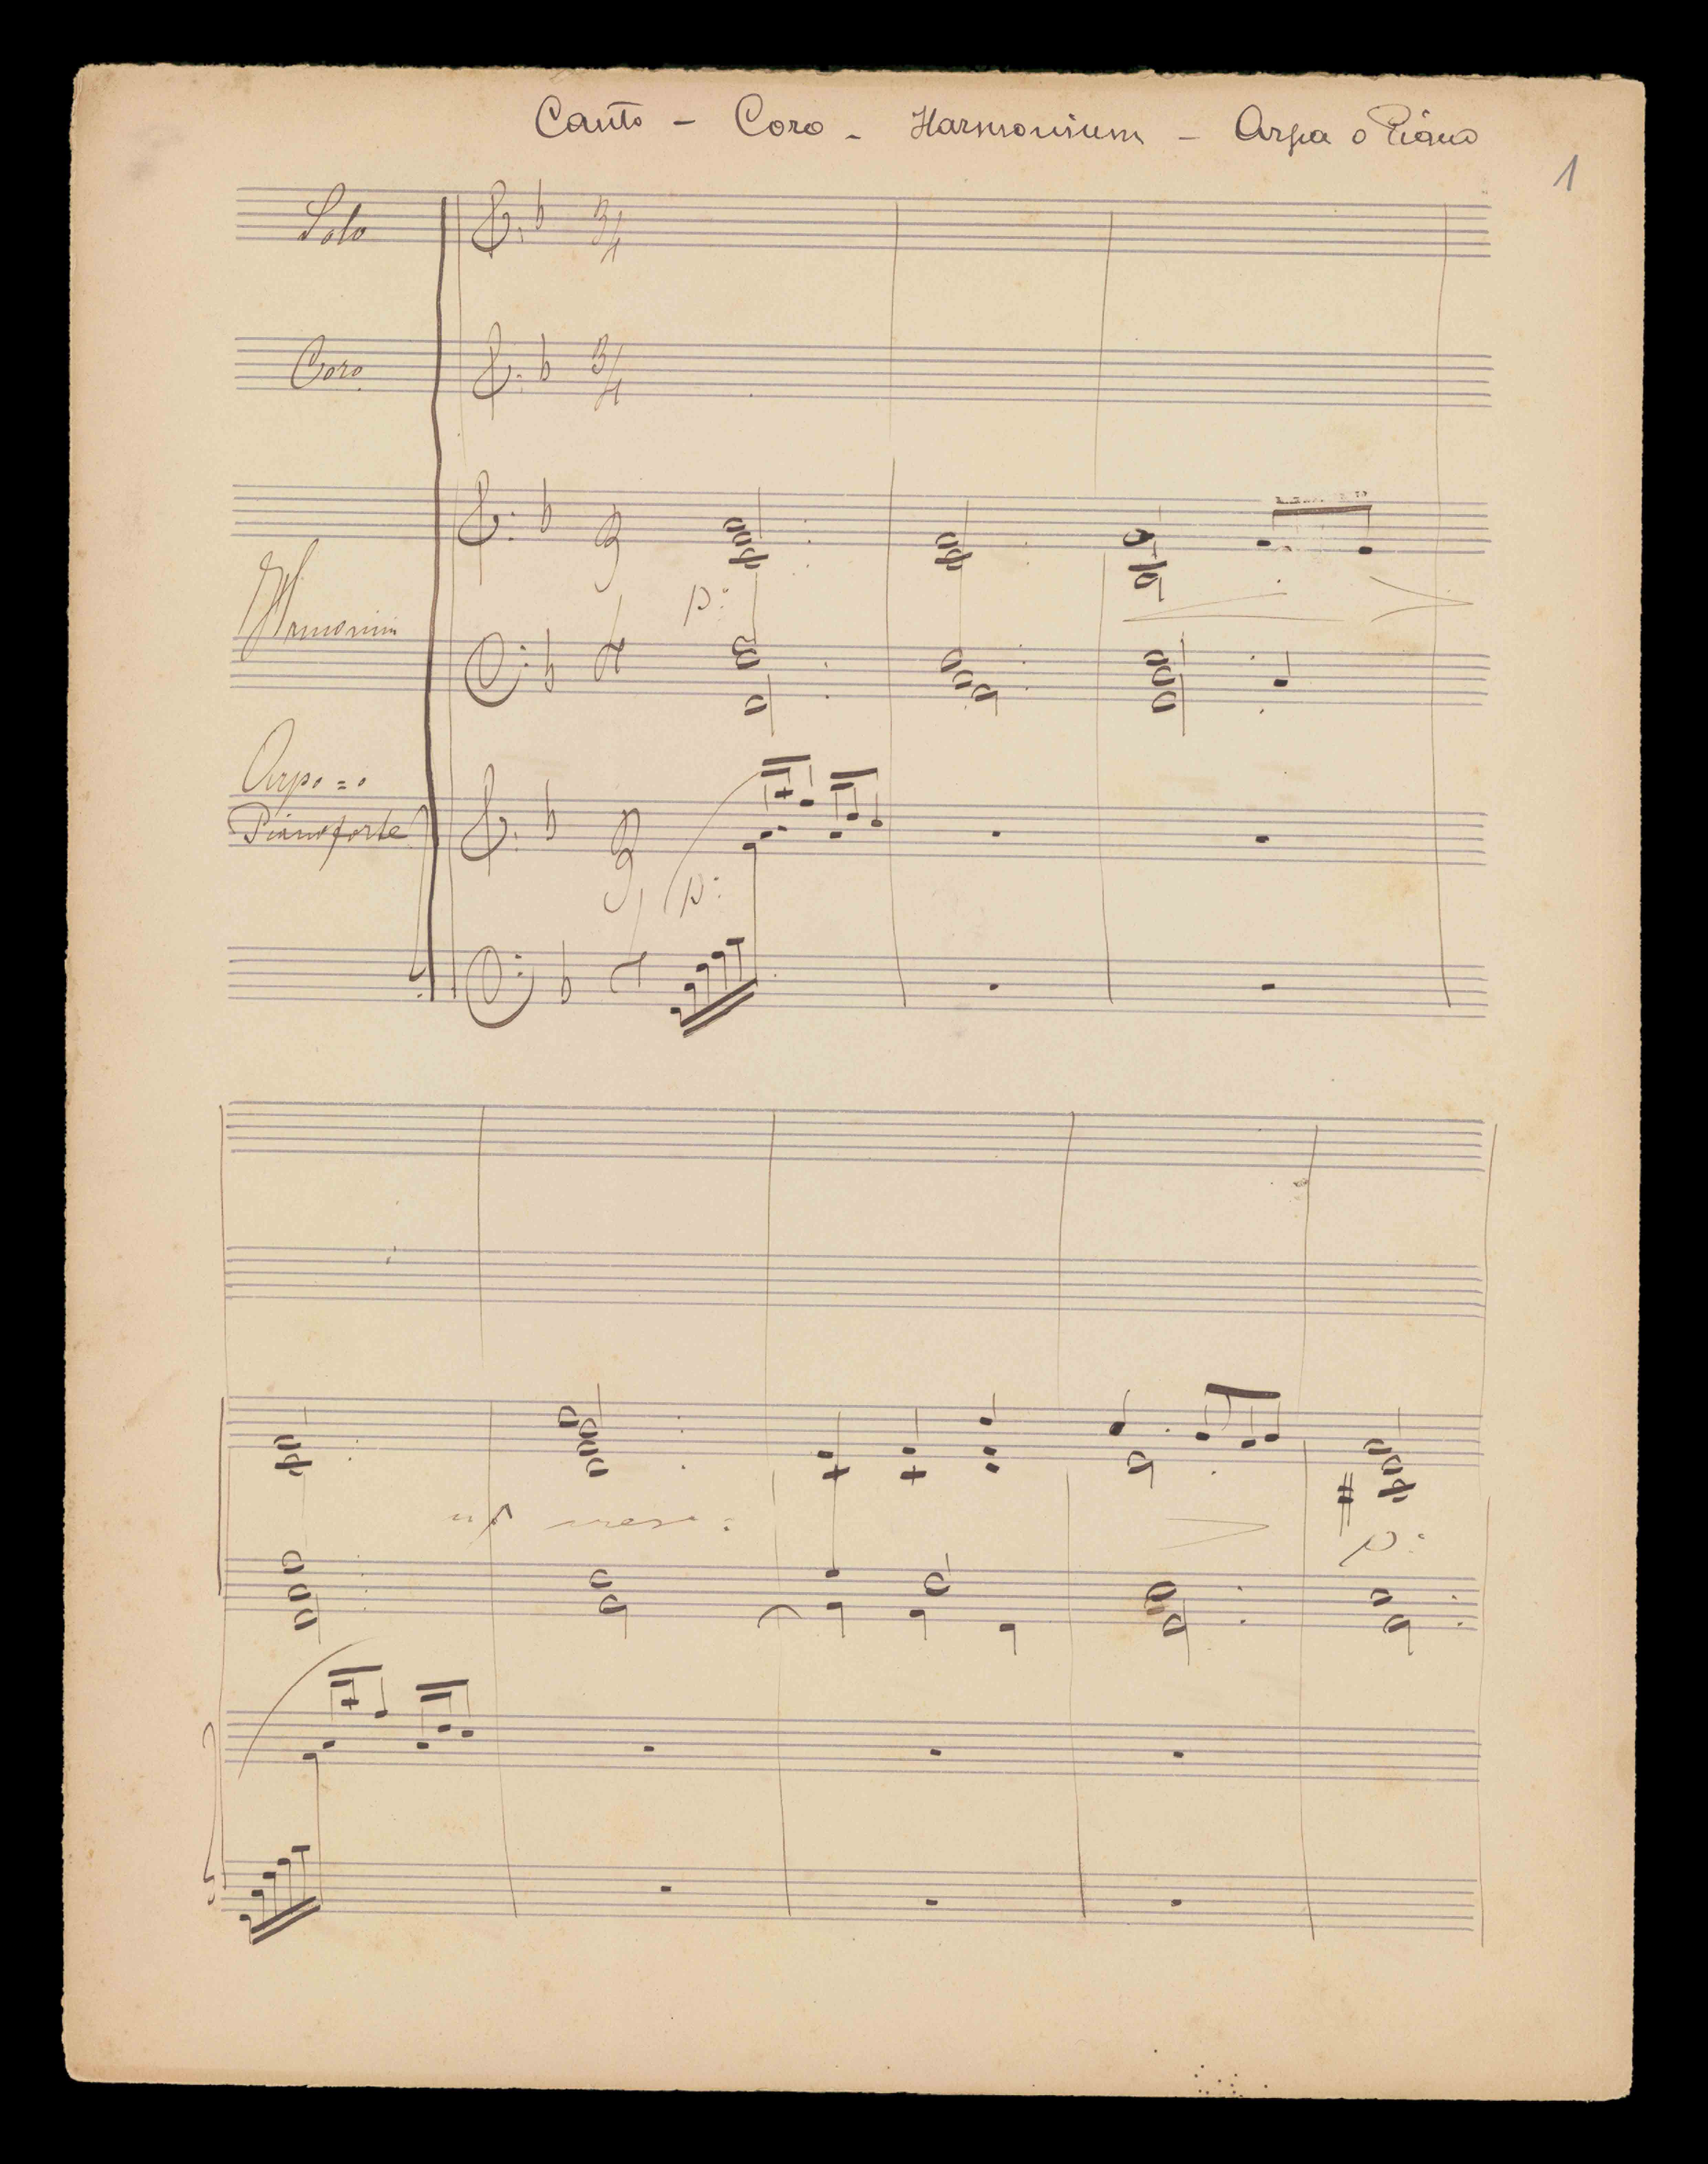 Canto - Coro - Harmonium - Arpa o Piano
1
Solo
3/4
Coro
3/4
3
p:
Armonium
4
Arpa = o
Pianoforte
3
p:
4
p: